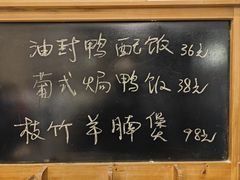 油封鸭配饭 36元
葡式焗鸭饭 38元
枝竹羊腩煲 98元